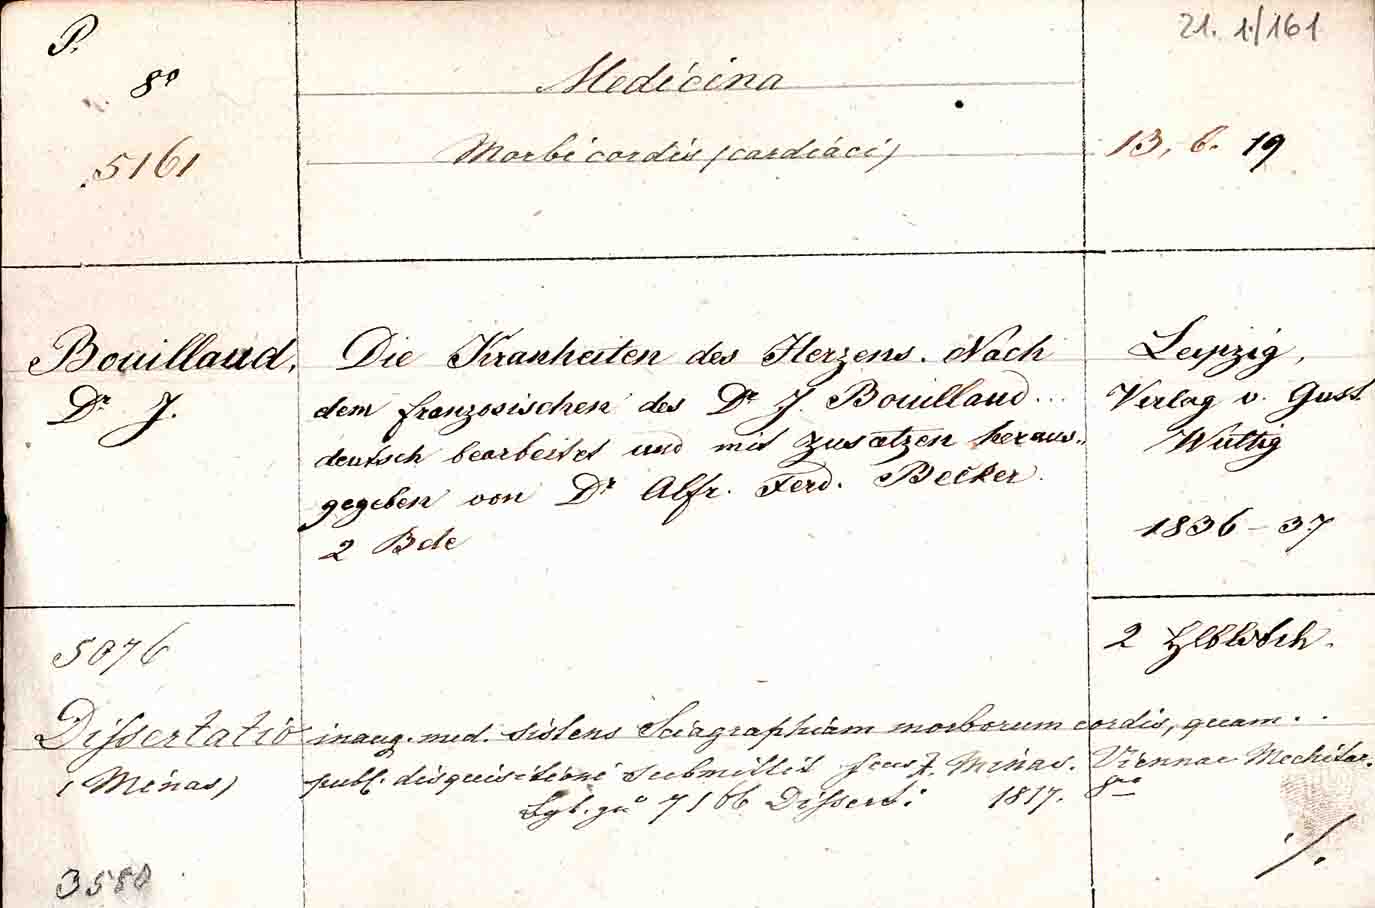 P.
8°
5161
Medicina
Morbi cordis (cardiaci)
21. 1/161
13, 6. 19
Bouillaud,
Dr J.
Die Krankheiten des Herzens. Nach
dem französischen des Dr J. Bouillaud ...
deutsch bearbeitet und mit Zusätzen heraus-
gegeben von Dr Alfr. Ferd. Becker.
2 Bde
Leipzig,
Verlag v. Gust.
Wuttig
1836-37
2 Hlbldrbde.
5076
Dissertatio inaug. med. sistens Sciagraphiam morborum cordis, quam . .
(Minas) publ. disquisitioni submittit Minas. Viennae Mechitar.
7166 Dissert: 1817. 8°
3580
./.